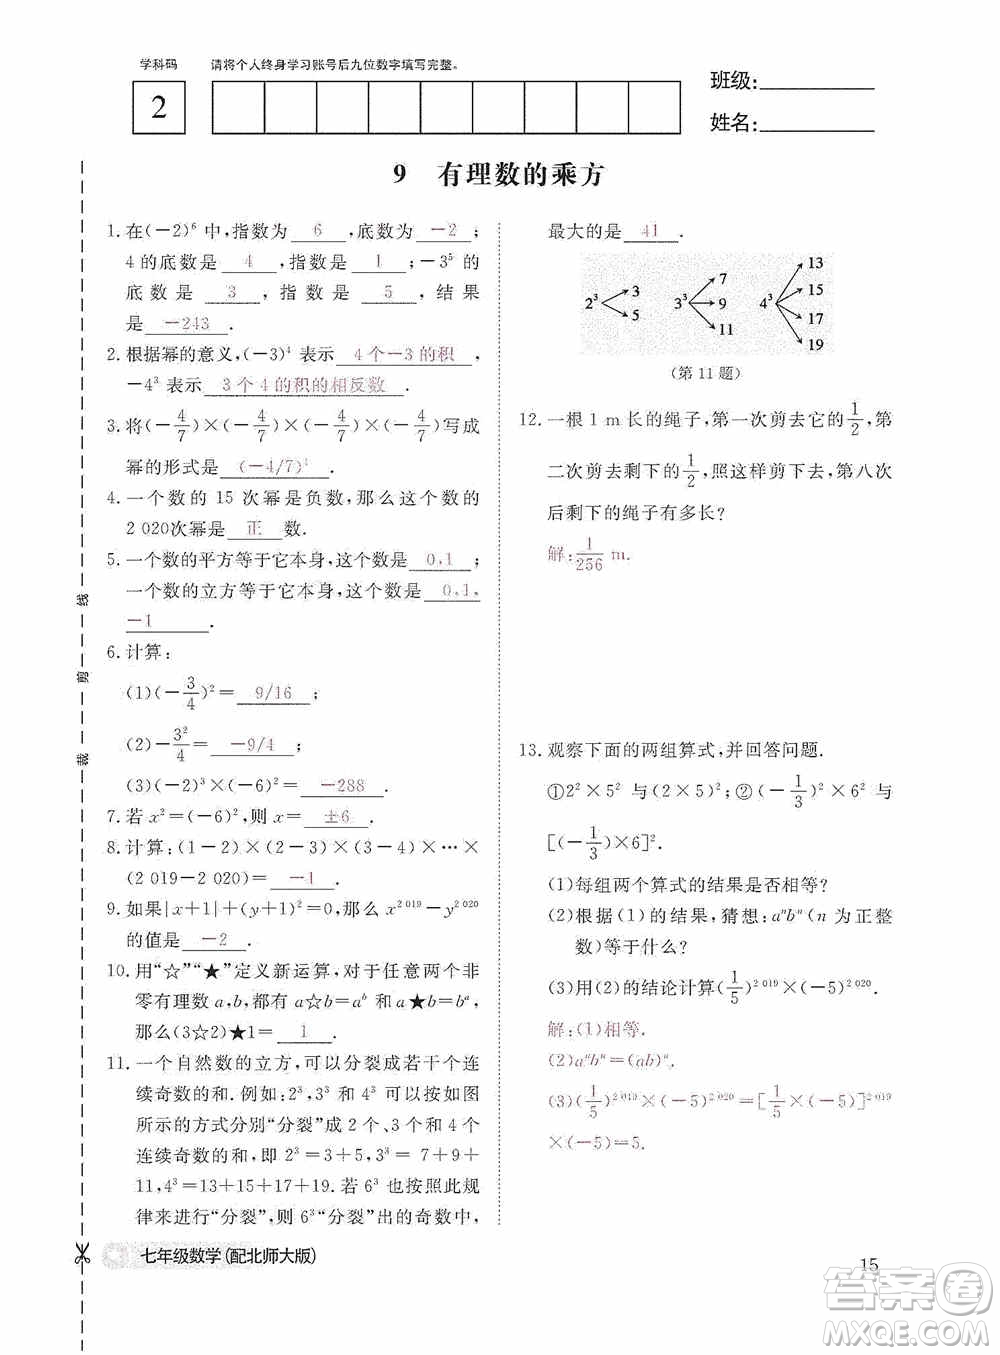 学科码 请将个人终身学习账号后九位数字填写完整。
2
班级:
姓名:
9 有理数的乘方
1. 在(－2)⁶中,指数为 6 ,底数为 －2 ;
4 的底数是 4 ,指数是 1 ;－3⁵ 的
底数是 3 ,指数是 5 ,结果
是 －243 .
2. 根据幂的意义,(－3)⁴ 表示 4个－3的积 ,
－4³ 表示 3个4的积的相反数 .
3. 将(－4/7)×(－4/7)×(－4/7)写成
幂的形式是 (－4/7)³ .
4. 一个数的 15 次幂是负数,那么这个数的
2 020次幂是 正 数.
5. 一个数的平方等于它本身,这个数是 0,1 ;
一个数的立方等于它本身,这个数是 0,1,
－1 .
6. 计算:
(1)(－3/4)²= 9/16 ;
(2)－3²/4= －9/4 ;
(3)(－2)³×(－6)²= －288 .
7. 若 x²=(－6)²,则 x= ±6 .
8. 计算:(1－2)×(2－3)×(3－4)×…×
(2 019－2 020)= －1 .
9. 如果|x＋1|＋(y＋1)²=0,那么 x²⁰¹⁹－y²⁰²⁰
的值是 －2 .
10. 用“☆”“★”定义新运算,对于任意两个非
零有理数 a,b,都有 a☆b=aᵇ 和 a★b=bᵃ,
那么(3☆2)★1= 1 .
11. 一个自然数的立方,可以分裂成若干个连
续奇数的和.例如:2³,3³ 和 4³ 按如图
所示的方式分别“分裂”成 2 个、3 个和 4 个
连续奇数的和,即 2³=3＋5,3³=7＋9＋
11,4³=13＋15＋17＋19.若 6³ 也按照此规
律来进行“分裂”,则 6³“分裂”出的奇数中,
最大的是 41 .
2³ 3 5
3³ 7 9 11
4³ 13 15 17 19
(第 11 题)
12. 一根 1 m 长的绳子,第一次剪去它的1/2,第
二次剪去剩下的1/2,照这样剪下去,第八次
后剩下的绳子有多长?
解:1/256 m.
13. 观察下面的两组算式,并回答问题.
①2²×5² 与(2×5)²;②(－1/3)²×6² 与
[(－1/3)×6]².
(1)每组两个算式的结果是否相等?
(2)根据(1)的结果,猜想:aⁿbⁿ(n 为正整
数)等于什么?
(3)用(2)的结论计算(1/5)²⁰¹⁹×(－5)²⁰²⁰.
解:(1)相等.
(2)aⁿbⁿ=(ab)ⁿ.
(3)(1/5)²⁰¹⁹×(－5)²⁰²⁰=[1/5×(－5)]²⁰¹⁹
×(－5)=5.
裁 剪 线
七年级数学(配北师大版)
15
答案圈
MXQE.COM